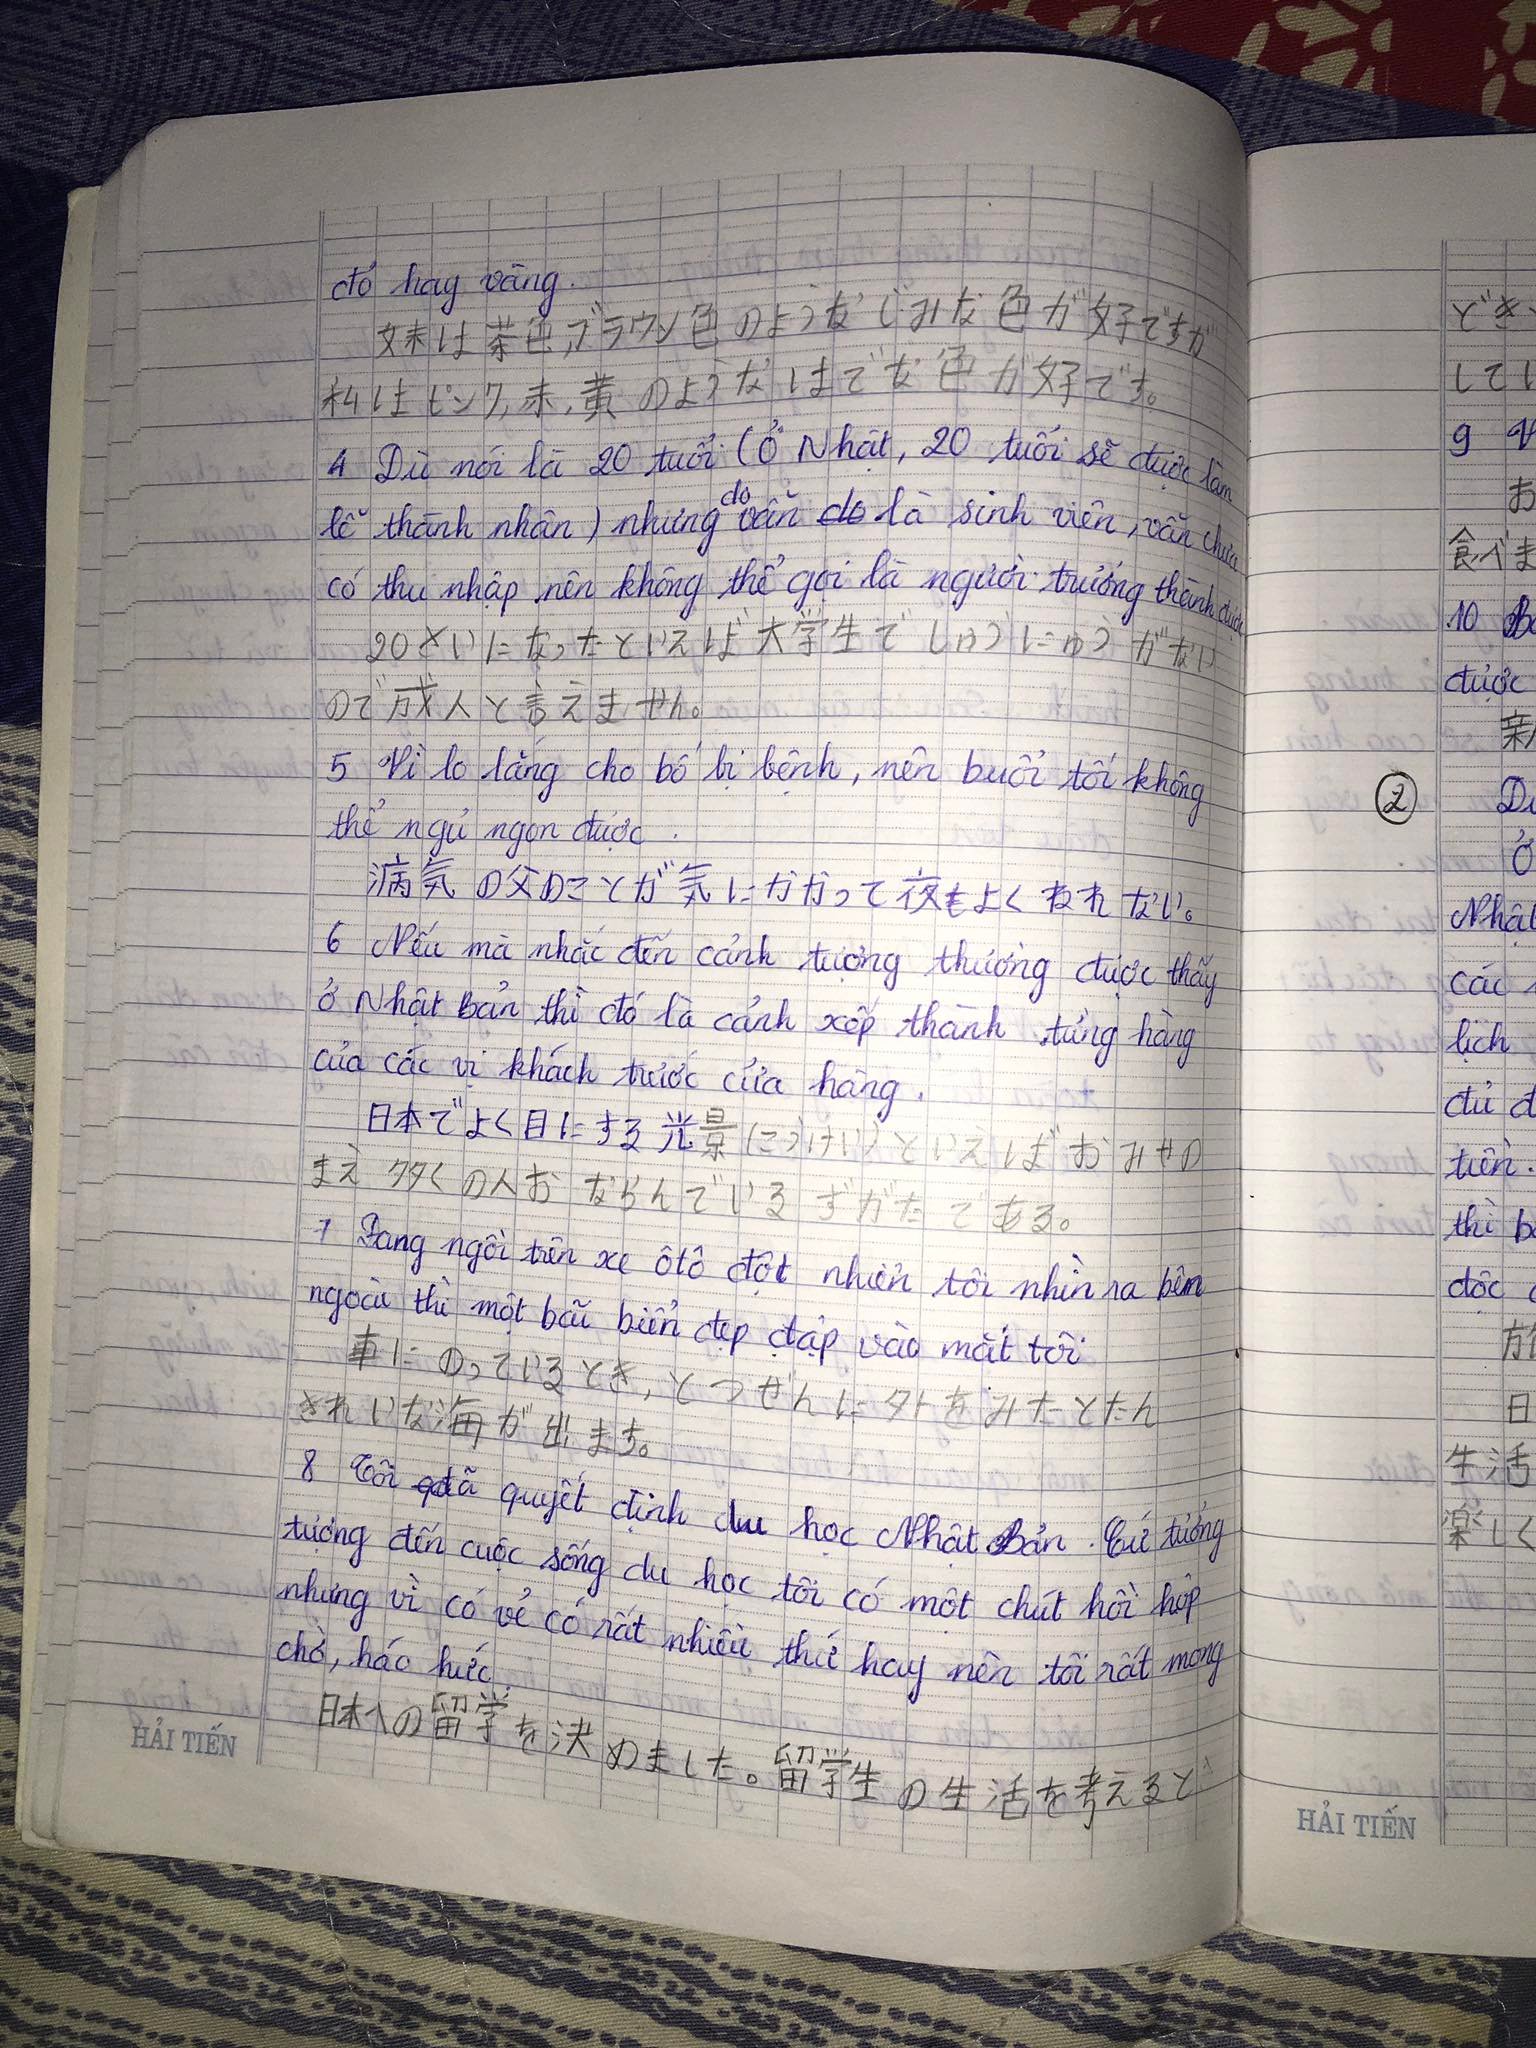 đỏ hay vàng.
妹は茶色,ブラウン色のようなじみな色が好ですが
私はピンク,赤,黄のようなはでな色が好です。
4 Dù nói là 20 tuổi (Ở Nhật, 20 tuổi sẽ được làm
lễ thành nhân) nhưng do vẫn là sinh viên, vẫn chưa
có thu nhập nên không thể gọi là người trưởng thành được
20さいになったといえば大学生でしゅうにゅうがない
ので成人と言えません。
5 Vì lo lắng cho bố bị bệnh, nên buổi tối không
thể ngủ ngon được.
病気の父のことが気にかかって夜もよくねれない。
6 Nếu mà nhắc đến cảnh tượng thường được thấy
ở Nhật Bản thì đó là cảnh xếp thành từng hàng
của các vị khách trước cửa hàng.
日本でよく目にする光景(こうけい)といえばおみせの
まえ多くの人おならんでいるずがたである。
7 Đang ngồi trên xe ôtô đột nhiên tôi nhìn ra bên
ngoài thì một bãi biển đẹp đập vào mắt tôi
車にのっているとき,とつぜんに外をみたとたん
きれいな海が出ます。
8 Tôi đã quyết định du học Nhật Bản. Cứ tưởng
tượng đến cuộc sống du học tôi có một chút hồi hộp
nhưng vì có vẻ có rất nhiều thứ hay nên tôi rất mong
chờ, háo hức.
日本への留学を決めました。留学生の生活を考えると
HẢI TIẾN
どき
して
9
お
食べま
10
được
②
Ở
Nhật
các
lịch
đủ đ
tiền.
thì
độc
日
生活
楽しく
HẢI TIẾN